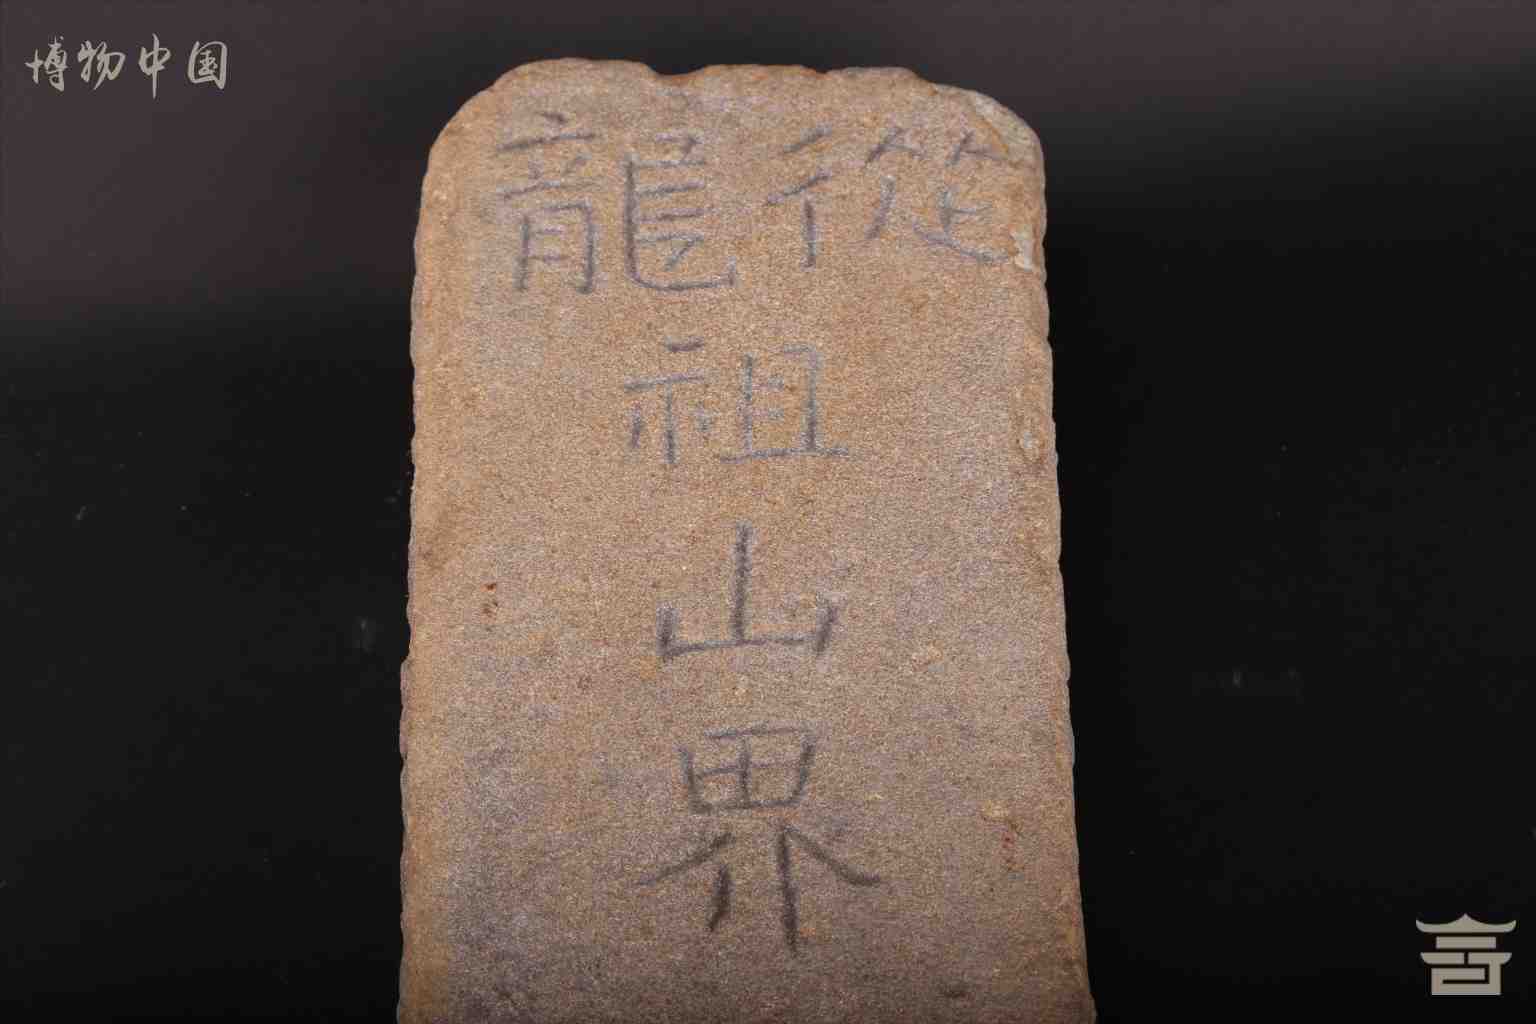 博物中国
從龍
祖
山
界